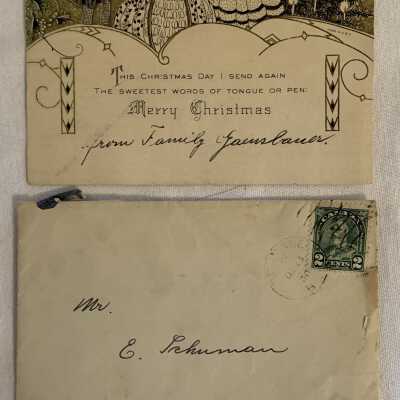 THIS CHRISTMAS DAY I SEND AGAIN
THE SWEETEST WORDS OF TONGUE OR PEN:
Merry Christmas
from Family Gainsbauer.
CANADA
2 CENTS 2
Mr.
E. Schuman